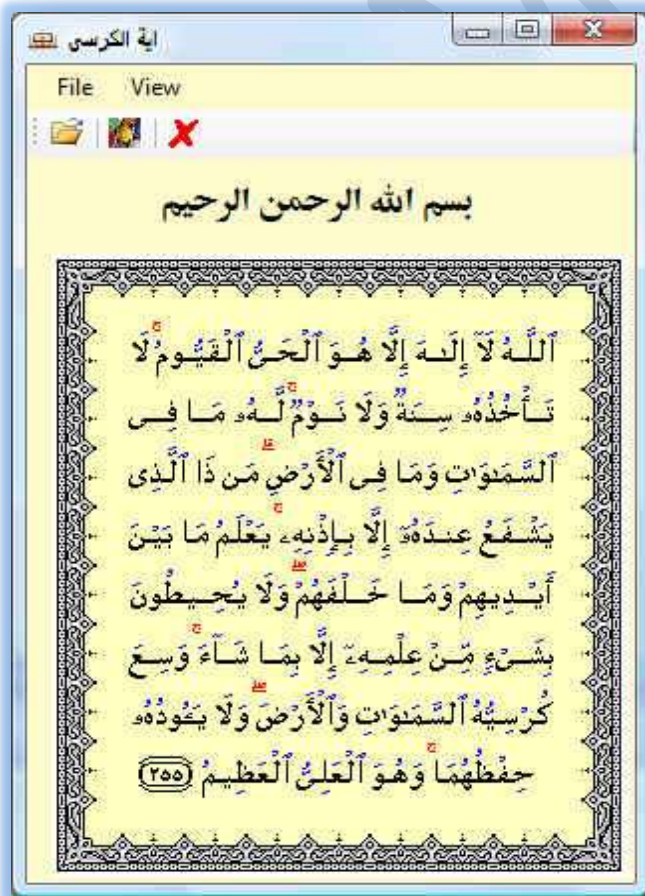 اية الكرسى
File View
بسم الله الرحمن الرحيم
ٱللَّهُ لَآ إِلَـٰهَ إِلَّا هُوَ ٱلْحَىُّ ٱلْقَيُّومُ ۚ لَا
تَأْخُذُهُۥ سِنَةٌ وَلَا نَوْمٌ ۚ لَّهُۥ مَا فِى
ٱلسَّمَـٰوَٰتِ وَمَا فِى ٱلْأَرْضِ ۗ مَن ذَا ٱلَّذِى
يَشْفَعُ عِندَهُۥٓ إِلَّا بِإِذْنِهِۦ ۚ يَعْلَمُ مَا بَيْنَ
أَيْدِيهِمْ وَمَا خَلْفَهُمْ ۖ وَلَا يُحِيطُونَ
بِشَىْءٍ مِّنْ عِلْمِهِۦٓ إِلَّا بِمَا شَآءَ ۚ وَسِعَ
كُرْسِيُّهُ ٱلسَّمَـٰوَٰتِ وَٱلْأَرْضَ ۖ وَلَا يَـُٔودُهُۥ
حِفْظُهُمَا ۚ وَهُوَ ٱلْعَلِىُّ ٱلْعَظِيمُ ٢٥٥